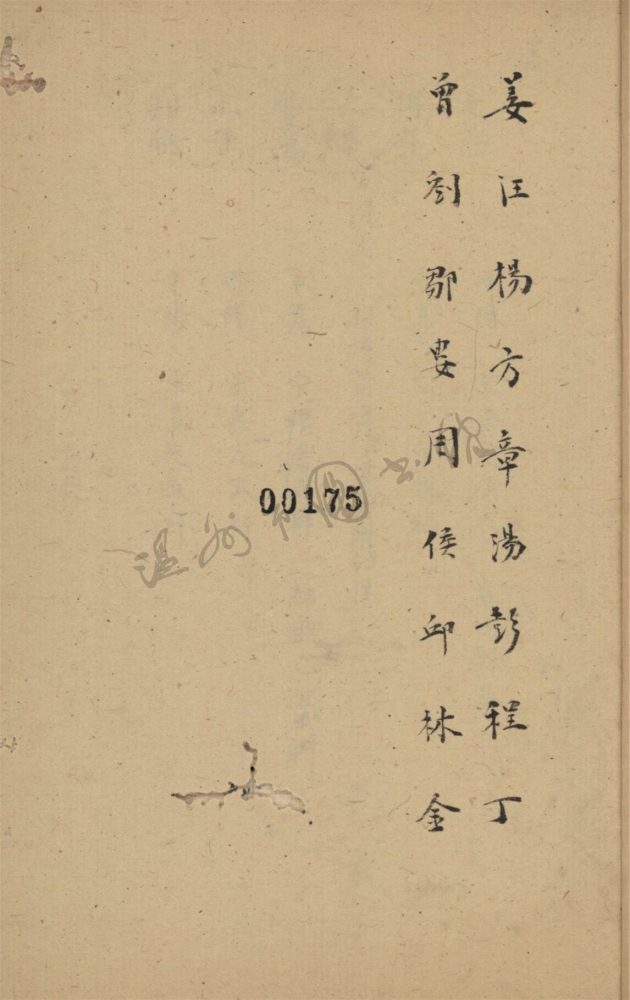 姜汪楊方章湯彭程丁
曾劉鄒婁周侯邱林金
00175
温州市图书馆